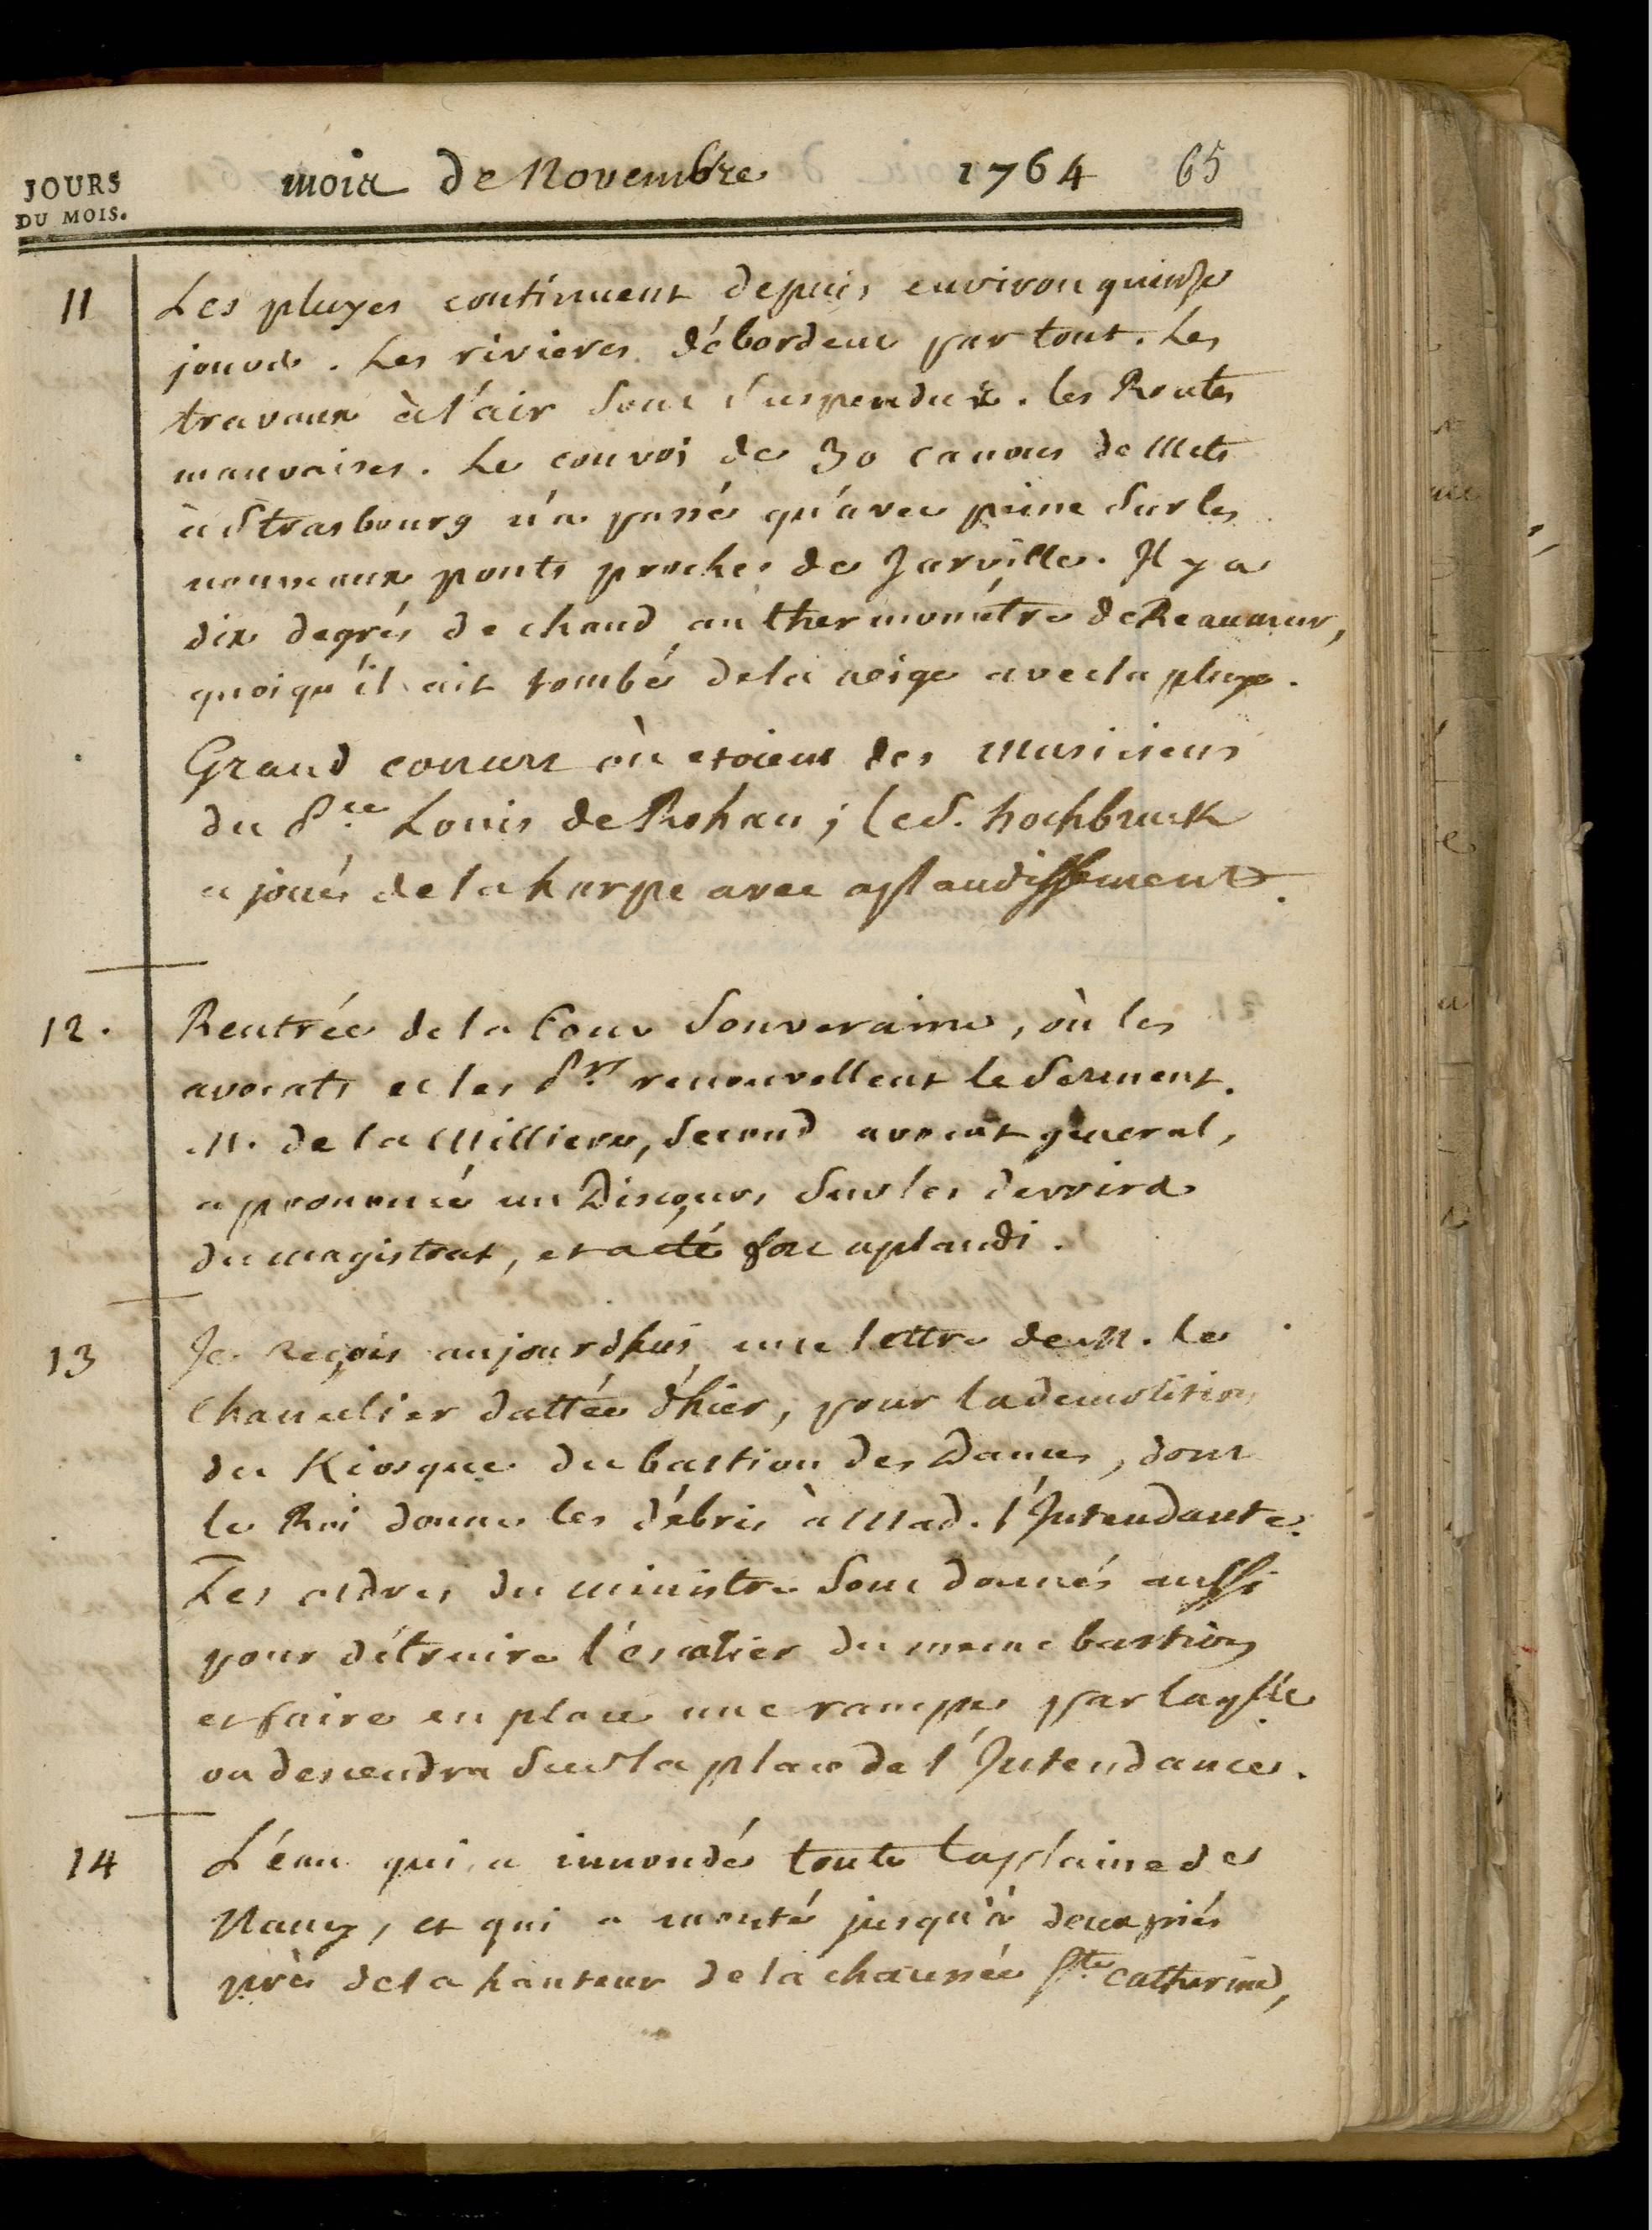 JOURS
DU MOIS.
mois de Novembre 1764 65
11 Les pluyes continuent depuis environ quinze
jours. Les rivieres débordent par tout. Les
travaux à l'air sont suspendus. les Routes
mauvaises. Le convoi de 30 canons de Mets
à Strasbourg n'a passé qu'avec peine sur les
nouveaux ponts proches de Jarville. Il y a
dix degrés de chaud au thermométre de Reaumur,
quoiqu'il ait tombé de la neige avec la pluye.
Grand concert où etoient des Musiciens
du Pce Louis de Rohan; le S. hochbruck
a joué de la harpe avec aplaudissement.
12. Rentrée de la Cour Souveraine, où les
avocats et les Prs renouvellent le Serment.
M. de la Milliere, Second avocat general,
a prononcé un Discours sur les devoirs
du magistrat, et a été fort aplaudi.
13 Je reçois aujourd'hui une lettre de M. le
Chancelier dattée d'hier, pour la demolition
du Kiosque du bastion des Dames, dont
le Roi donne les débris à Mad. l'Intendante.
Les ordres du ministre sont donnés aussi
pour détruire l'escalier du meme bastion
et faire en place une rampe par laqlle
on descendra sur la place de l'Intendance.
14 L'éau qui a innondé toute la plaine de
Nancy, et qui a monté jusqu'à deux piés
près de la hauteur de la chaussée Ste Catherine,